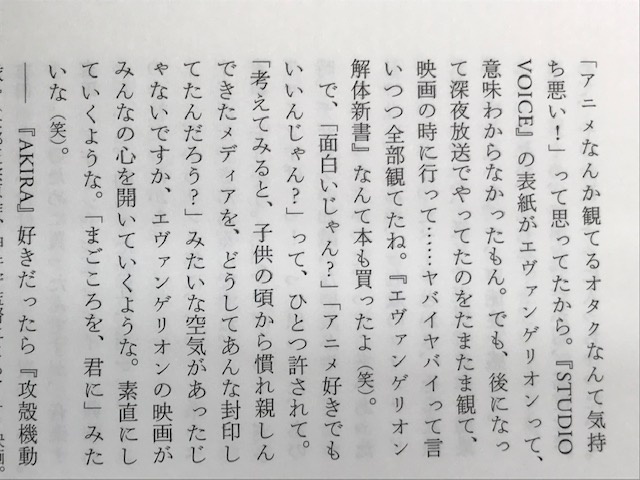 「アニメなんか観てるオタクなんて気持
ち悪い！」って思ってたから。『STUDIO
VOICE』の表紙がエヴァンゲリオンって、
意味わからなかったもん。でも、後になっ
て深夜放送でやってたのをたまたま観て、
映画の時に行って……ヤバイヤバイって言
いつつ全部観てたね。『エヴァンゲリオン
解体新書』なんて本も買ったよ（笑）。
で、「面白いじゃん？」「アニメ好きでも
いいんじゃん？」って、ひとつ許されて。
「考えてみると、子供の頃から慣れ親しん
できたメディアを、どうしてあんな封印し
てたんだろう？」みたいな空気があったじ
ゃないですか、エヴァンゲリオンの映画が
みんなの心を開いていくような。素直にし
ていくような。「まごころを、君に」みた
いな（笑）。
――『AKIRA』好きだったら『攻殻機動